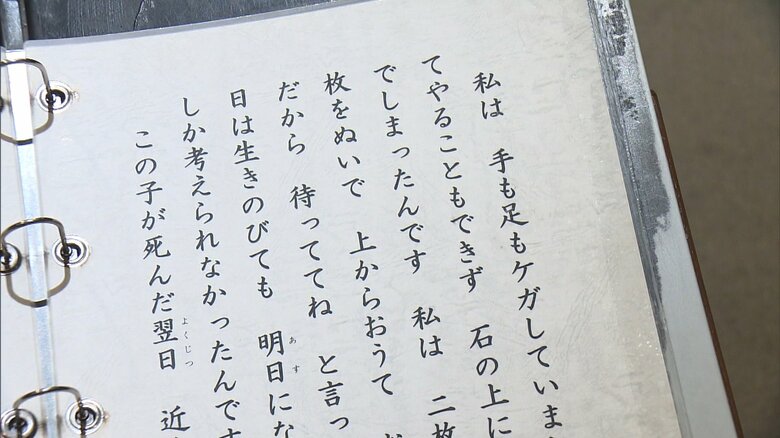 私は　手も足もケガしていま
てやることもできず　石の上に
でしまったんです　私は　二枚
枚をぬいで　上からおうて
だから　待っててね　と言っ
日は生きのびても　明日にな
あす
しか考えられなかったんです
この子が死んだ翌日　近
よくじつ